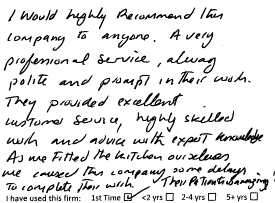 I would highly Recommend this
company to anyone. A very
professional service, alway
polite and prompt in their work.
They provided excellent
customer service, highly skilled
work and advice with expert knowledge
As we fitted the kitchen ourselves
we caused this company some delays
to complete their work. Their patients amazing!
I have used this firm: 1st Time <2 yrs 2-4 yrs 5+ yrs